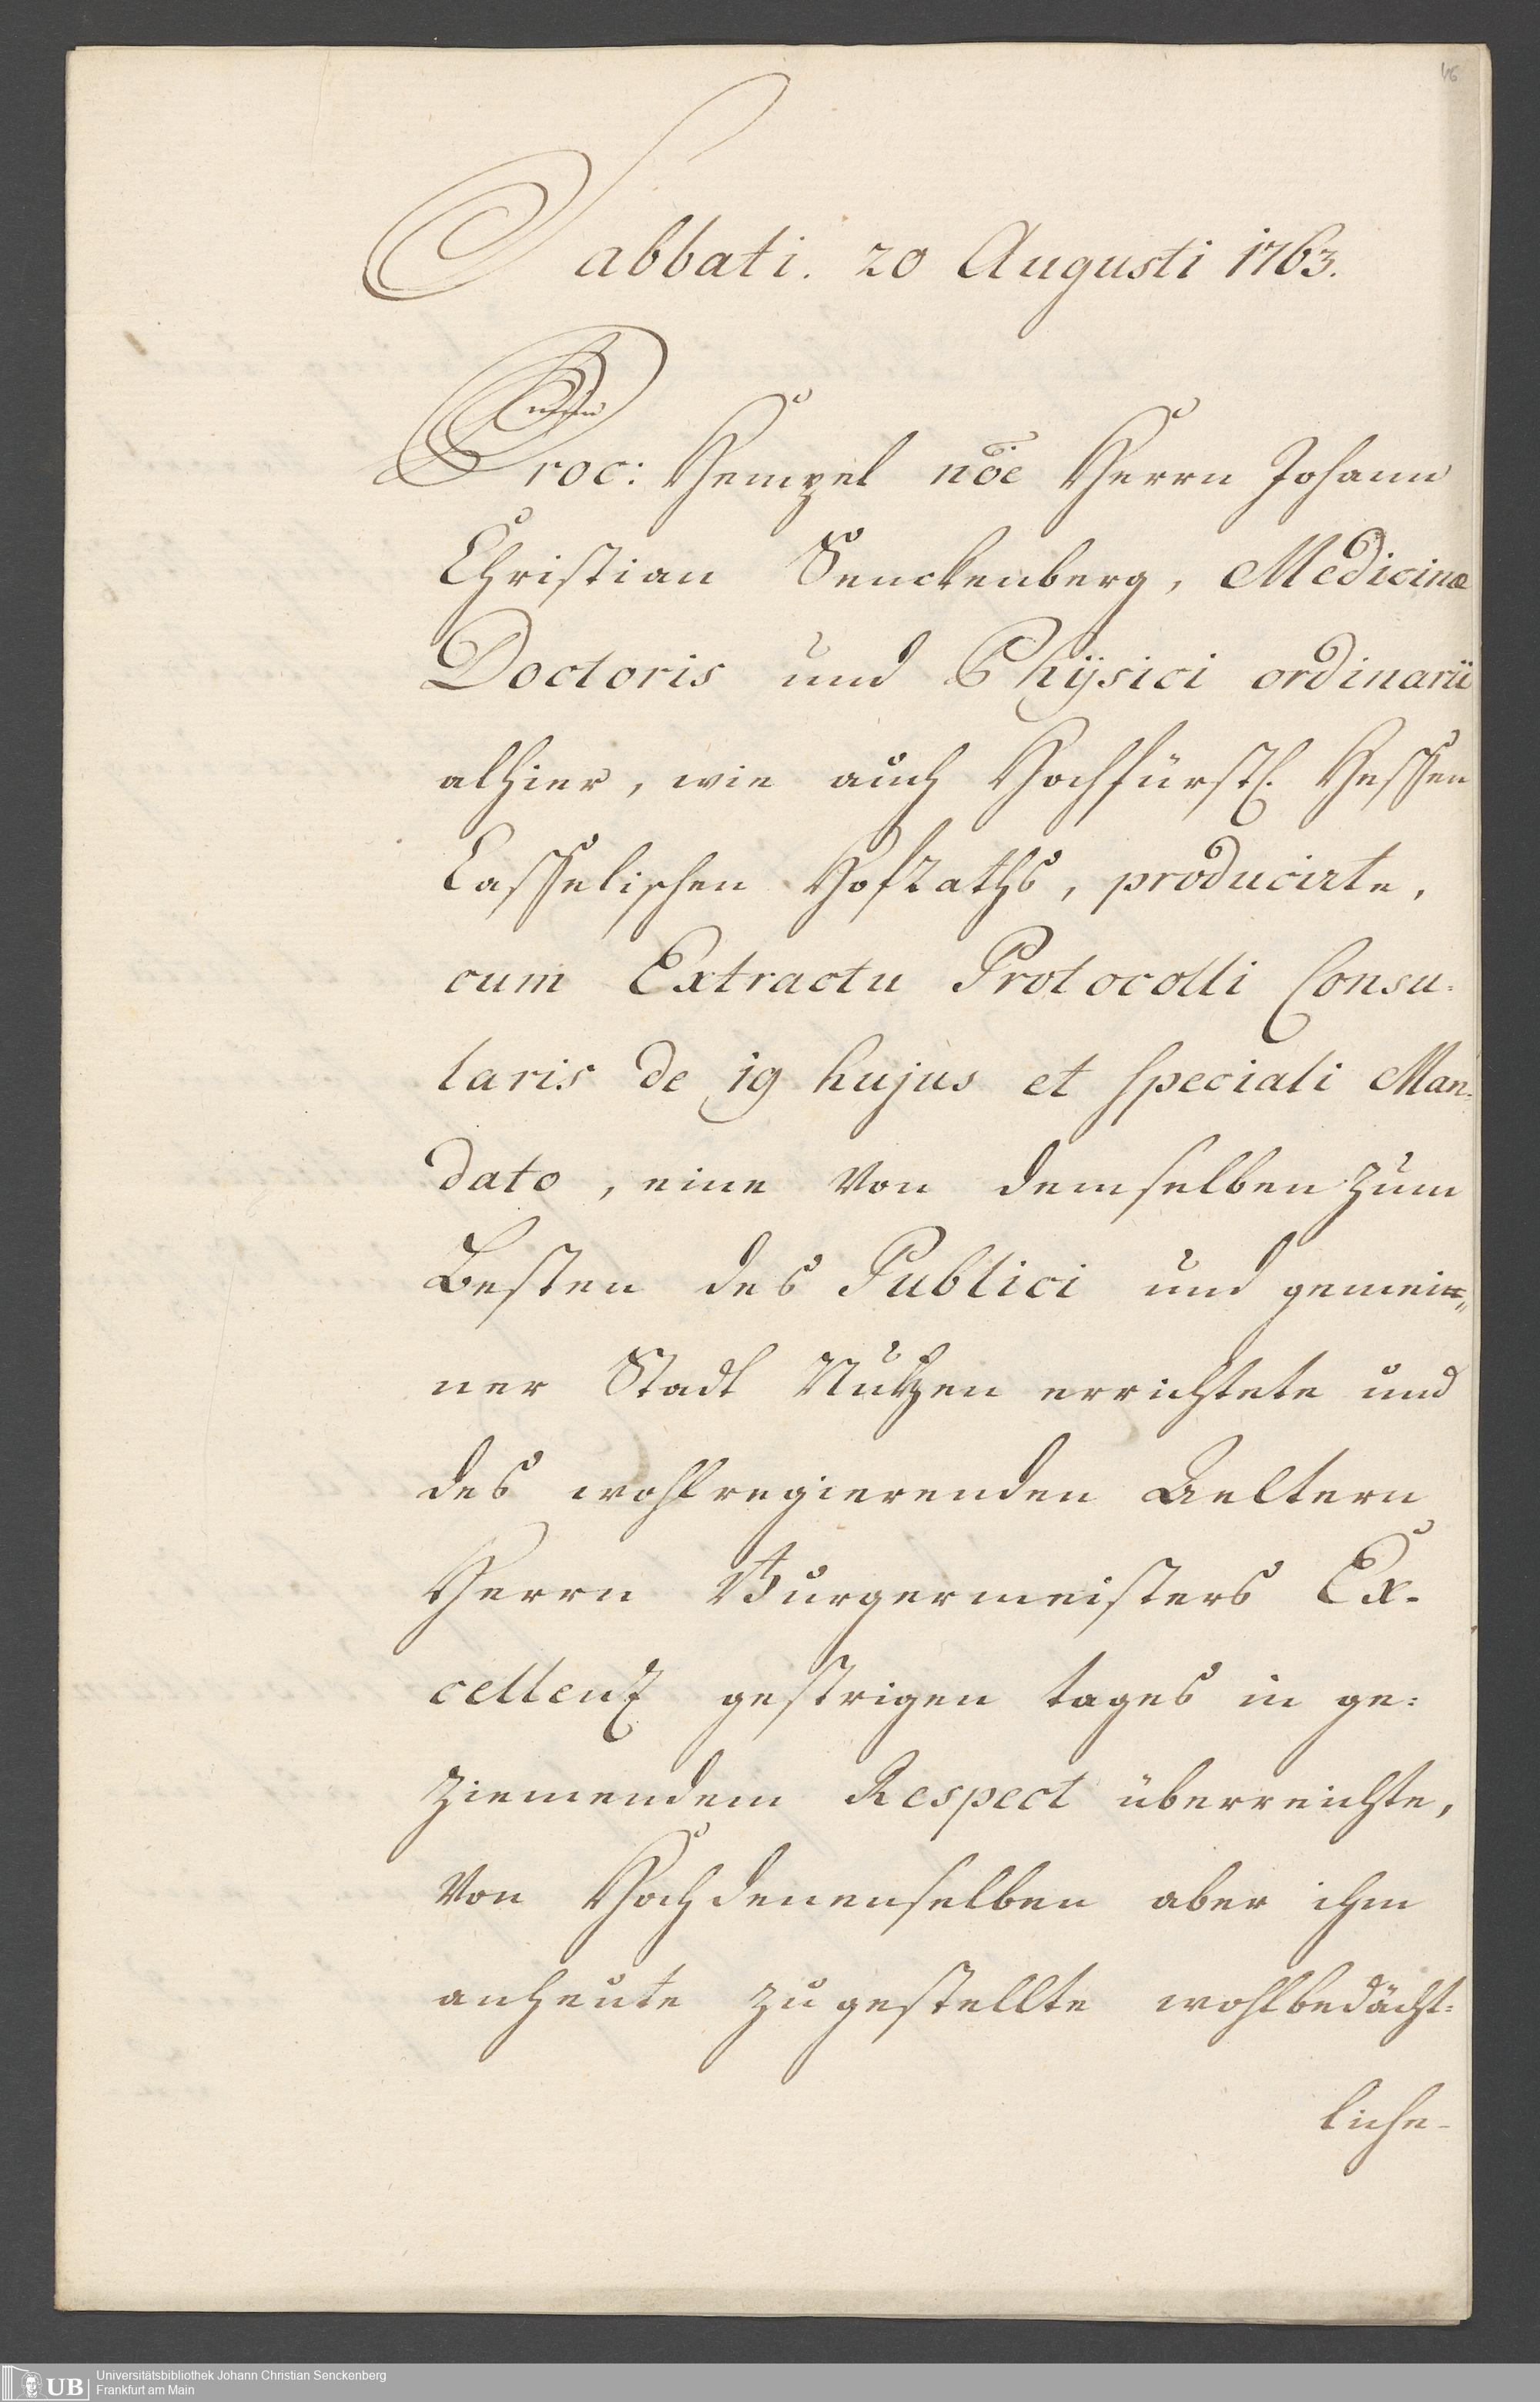 46
Sabbati. 20 Augusti 1763.
Proc: Hempel nõe Herrn Johann
Christian Senckenberg, Medicinæ
Doctoris und Physici ordinarii
alhier, wie auch Hochfürstl. Hessen
Casselischen Hofraths, producirte,
cum Extractu Protocolli Consu-
laris de 19 hujus et speciali Man-
dato, eine von demselben zum
Besten des Publici und gemei-
ner Stadt Nutzen errichtete und
des wohlregierenden Aeltern
Herrn Burgermeisters Ex-
cellenz gestrigen tages in ge-
ziemendem Respect überreichte,
von Hochdenenselben aber ihm
anheute zugestellte wohlbedächt-
liche-
UB Universitätsbibliothek Johann Christian Senckenberg
Frankfurt am Main